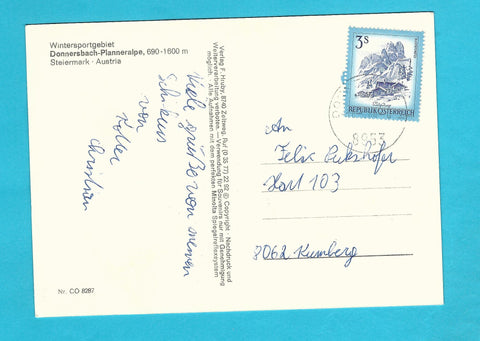 Wintersportgebiet
Donnersbach-Planneralpe, 690-1600 m
Steiermark · Austria
Viele Grüße von meinem
Schikurs
von
Christian
Verlag F. Hruby, 8740 Zeltweg, Ruf (0 35 77) 22 92 © Copyright · Nachdruck und
Weiterverarbeitung verboten. — Verwendung für Souvenirs nur mit Genehmigung
möglich. · Alle Aufnahmen mit dem perfekten Minolta Spiegelreflexsystem
3S
REPUBLIK ÖSTERREICH
8953
An
Felix
Hart 103
8062 Kumberg
Nr. CO 8287